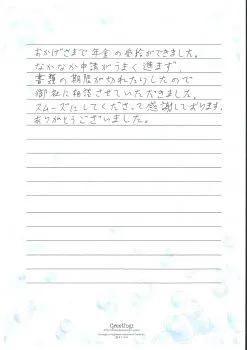 おかげさまで年金の受給ができました。
なかなか申請がうまく進まず、
書類の期限が切れたりしたので
御社に相談させていただきました。
スムーズにしてくださって感謝しております。
ありがとうございました。
Greetings